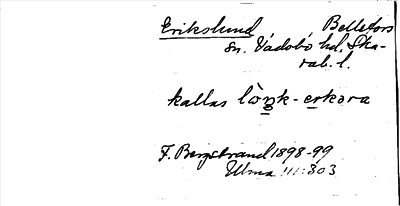 Erikslund Bellefors
sn. Vadsbo hd. Ska-
rab. l.
kallas lòŋk-erkəra
F. Bergstrand 1898-99
Ulma 111:303